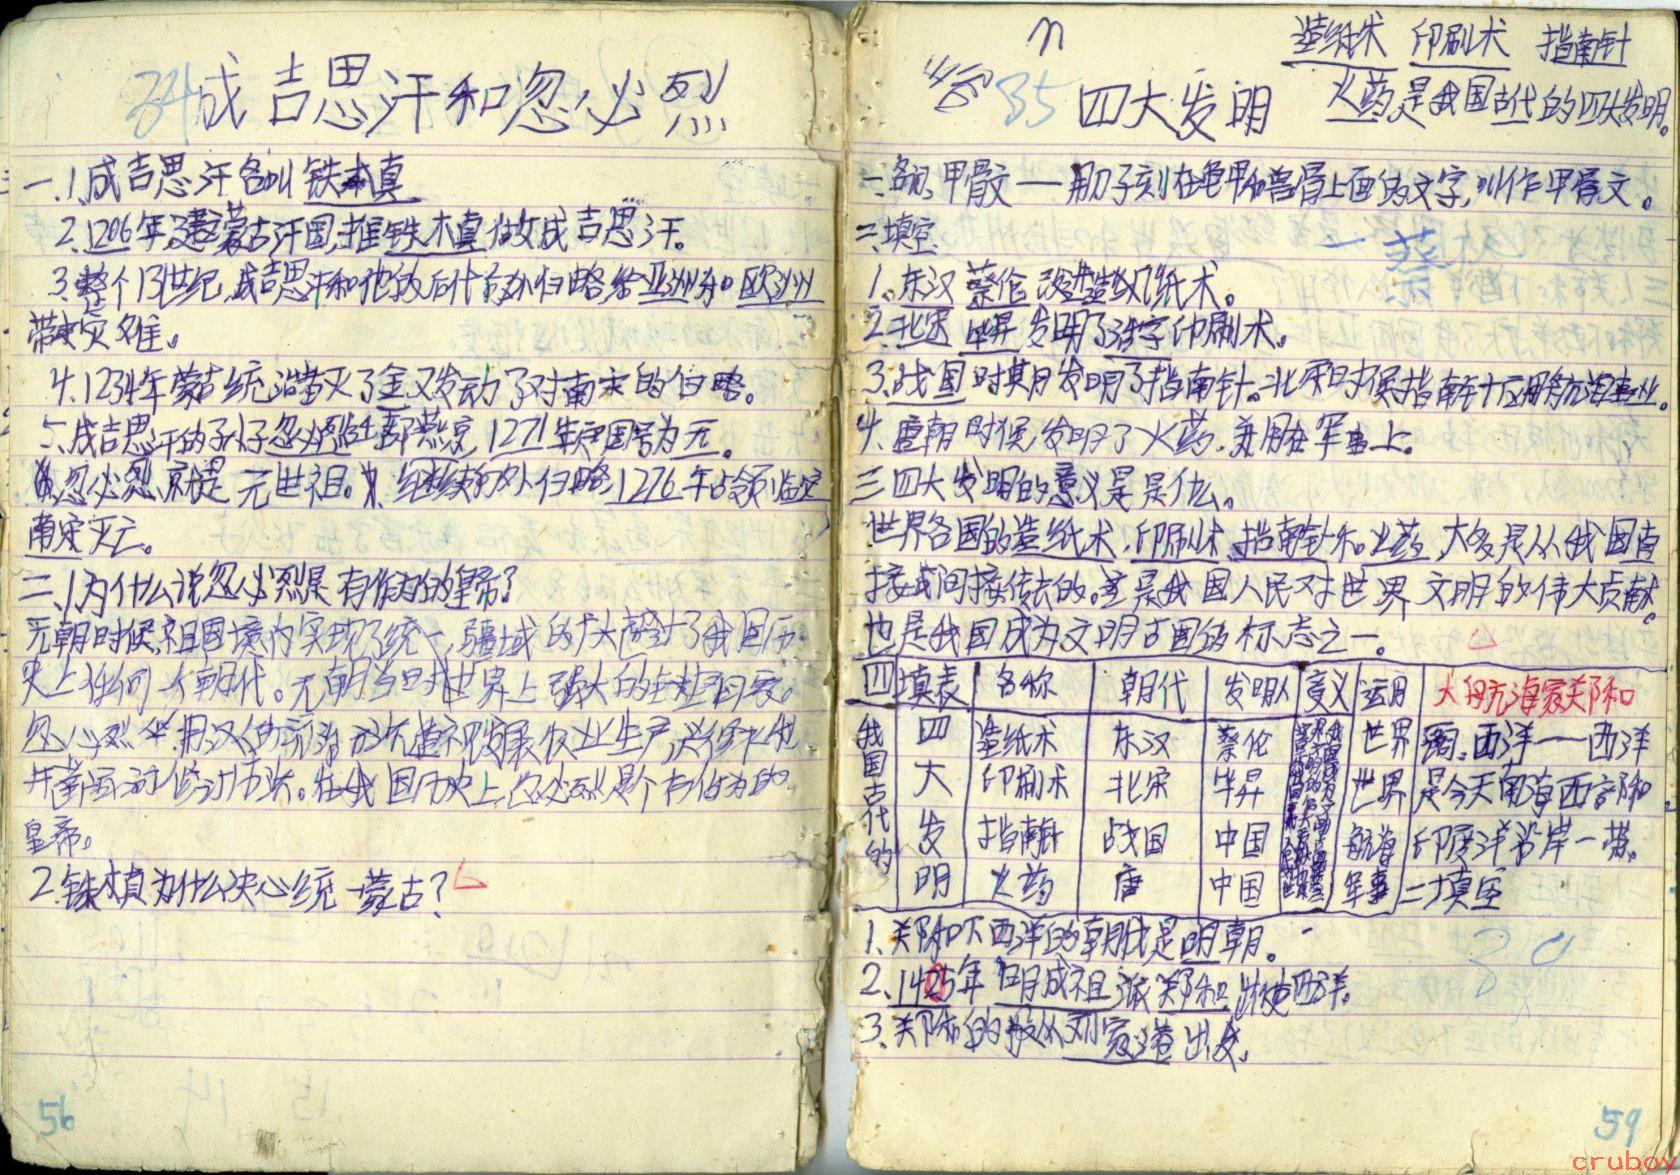 34 成吉思汗和忽必烈
一.1.成吉思汗名叫铁木真
2.1206年建蒙古汗国,推铁木真做成吉思汗。
3.整个13世纪,成吉思汗和他的后代的对外侵略给亚洲和欧洲
带来灾难。
4.1234年蒙古统治者灭了金又发动了对南宋的侵略。
5.成吉思汗的孙子忽必烈迁都燕京,1271年定国号为元。
忽必烈就是元世祖。继续对外侵略,1276年占领临安
南宋灭亡。
二、1为什么说忽必烈是有作为的皇帝?
元朝时候,祖国境内实现了统一,疆域的广大超过了我国历
史上任何一个朝代。元朝当时世界上强大的国家。
忽必烈采用汉人的统治方式,发展农业生产
在我国历史上,忽必烈是个有作为的
皇帝。
2.铁木真为什么决心统一蒙古?
56
造纸术 印刷术 指南针
火药是我国古代的四大发明。
35 四大发明
一.名词.甲骨文——用刀子刻在龟甲和兽骨上面的文字,叫作甲骨文。
二.填空 一蔡
1.东汉蔡伦改进造纸术。
2.北宋毕昇发明了活字印刷术。
3.战国时期发明了指南针。北宋时候指南针应用航海事业。
4.唐朝时候,发明了火药.并用在军事上。
三四大发明的意义是是什么。
世界各国的造纸术,印刷术,指南针和火药,大多是从我国直
接或间接传去的。这是我国人民对世界文明的伟大贡献。
也是我国成为文明古国的标志之一。
四 填表 名称 朝代 发明人 意义 运用 大航海家关阝和
我国古代的 四 造纸术 东汉 蔡伦 世界 西洋——西洋
大 印刷术 北宋 毕昇 世界 是今天南海西部和
发 指南针 战国 中国 航海 印度洋沿岸一带。
明 火药 唐 中国 军事 二填空
1、关阝和下西洋的朝代是明朝。
2、1405年 明成祖派郑和出使西洋。
3.关阝和的船从刘家港出发。
59
cruboy